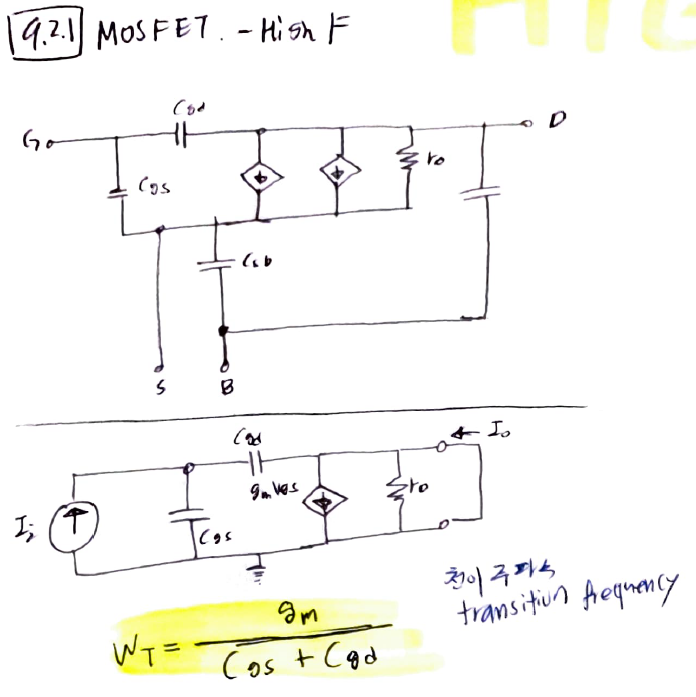 9.2.1 MOSFET. - High F
Cgd
G
D
Cgs
ro
Csb
S
B
Cgd
Io
gmVgs
ro
Ii
Cgs
천이 주파수
transition frequency
gm
WT =
Cgs + Cgd